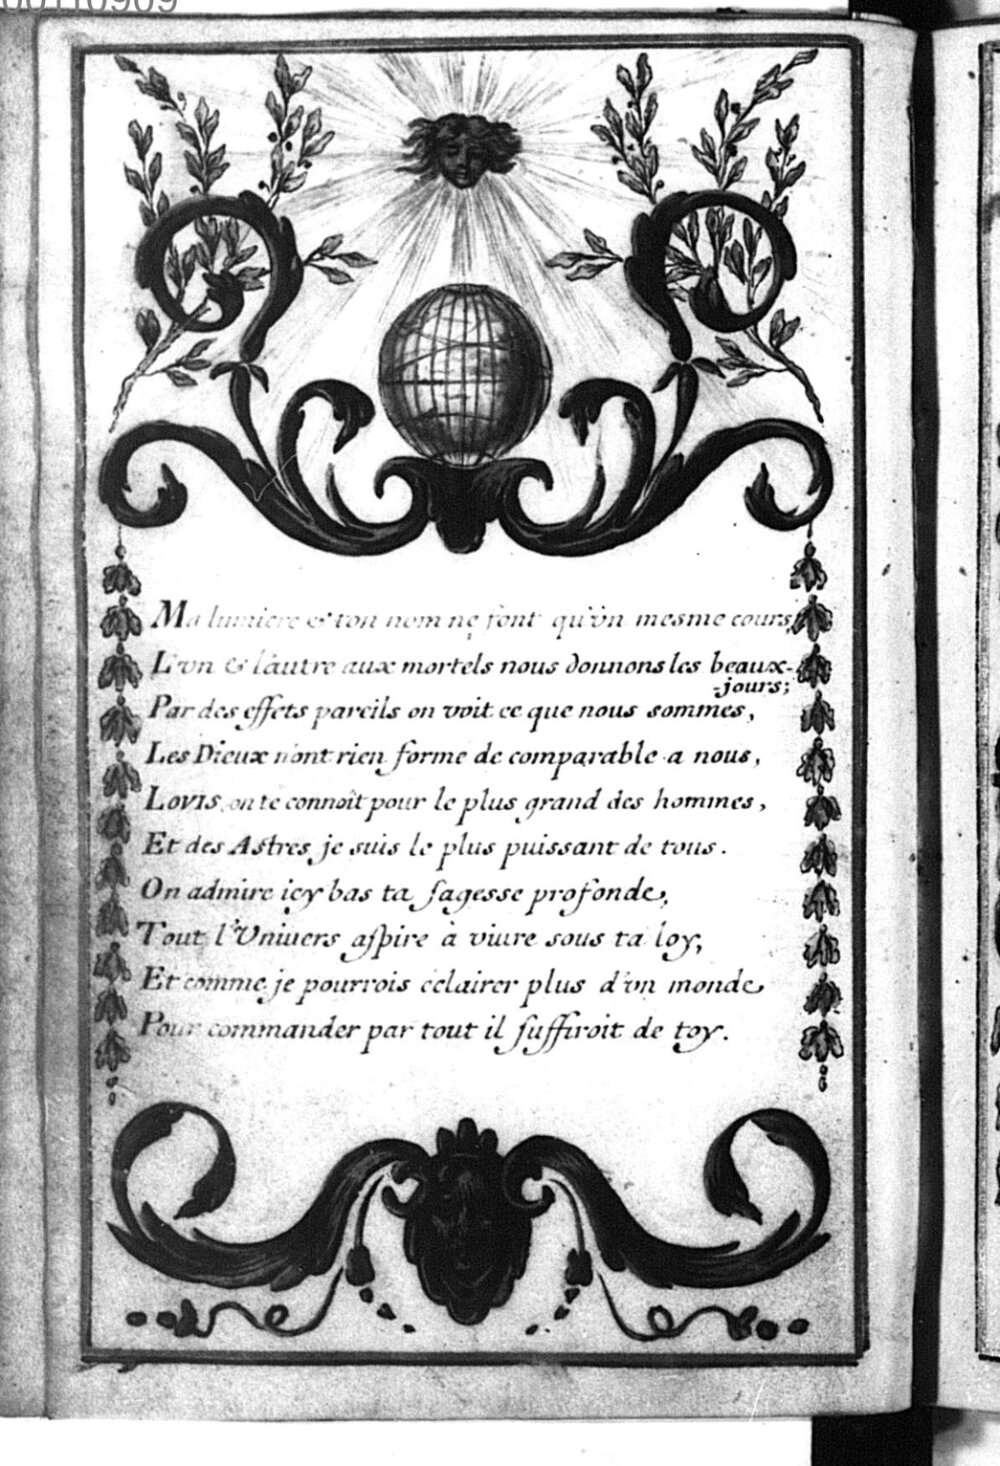 Ma lumiere & ton nom ne font qu'vn mesme cours,
L'vn & l'autre aux mortels nous donnons les beaux-
-jours;
Par des effets pareils on voit ce que nous sommes,
Les Dieux n'ont rien forme de comparable a nous,
LOVIS, on te connoît pour le plus grand des hommes,
Et des Astres je suis le plus puissant de tous.
On admire icy bas ta sagesse profonde,
Tout l'Vniuers aspire à viure sous ta loy,
Et comme je pourrois eclairer plus d'vn monde
Pour commander par tout il suffiroit de toy.